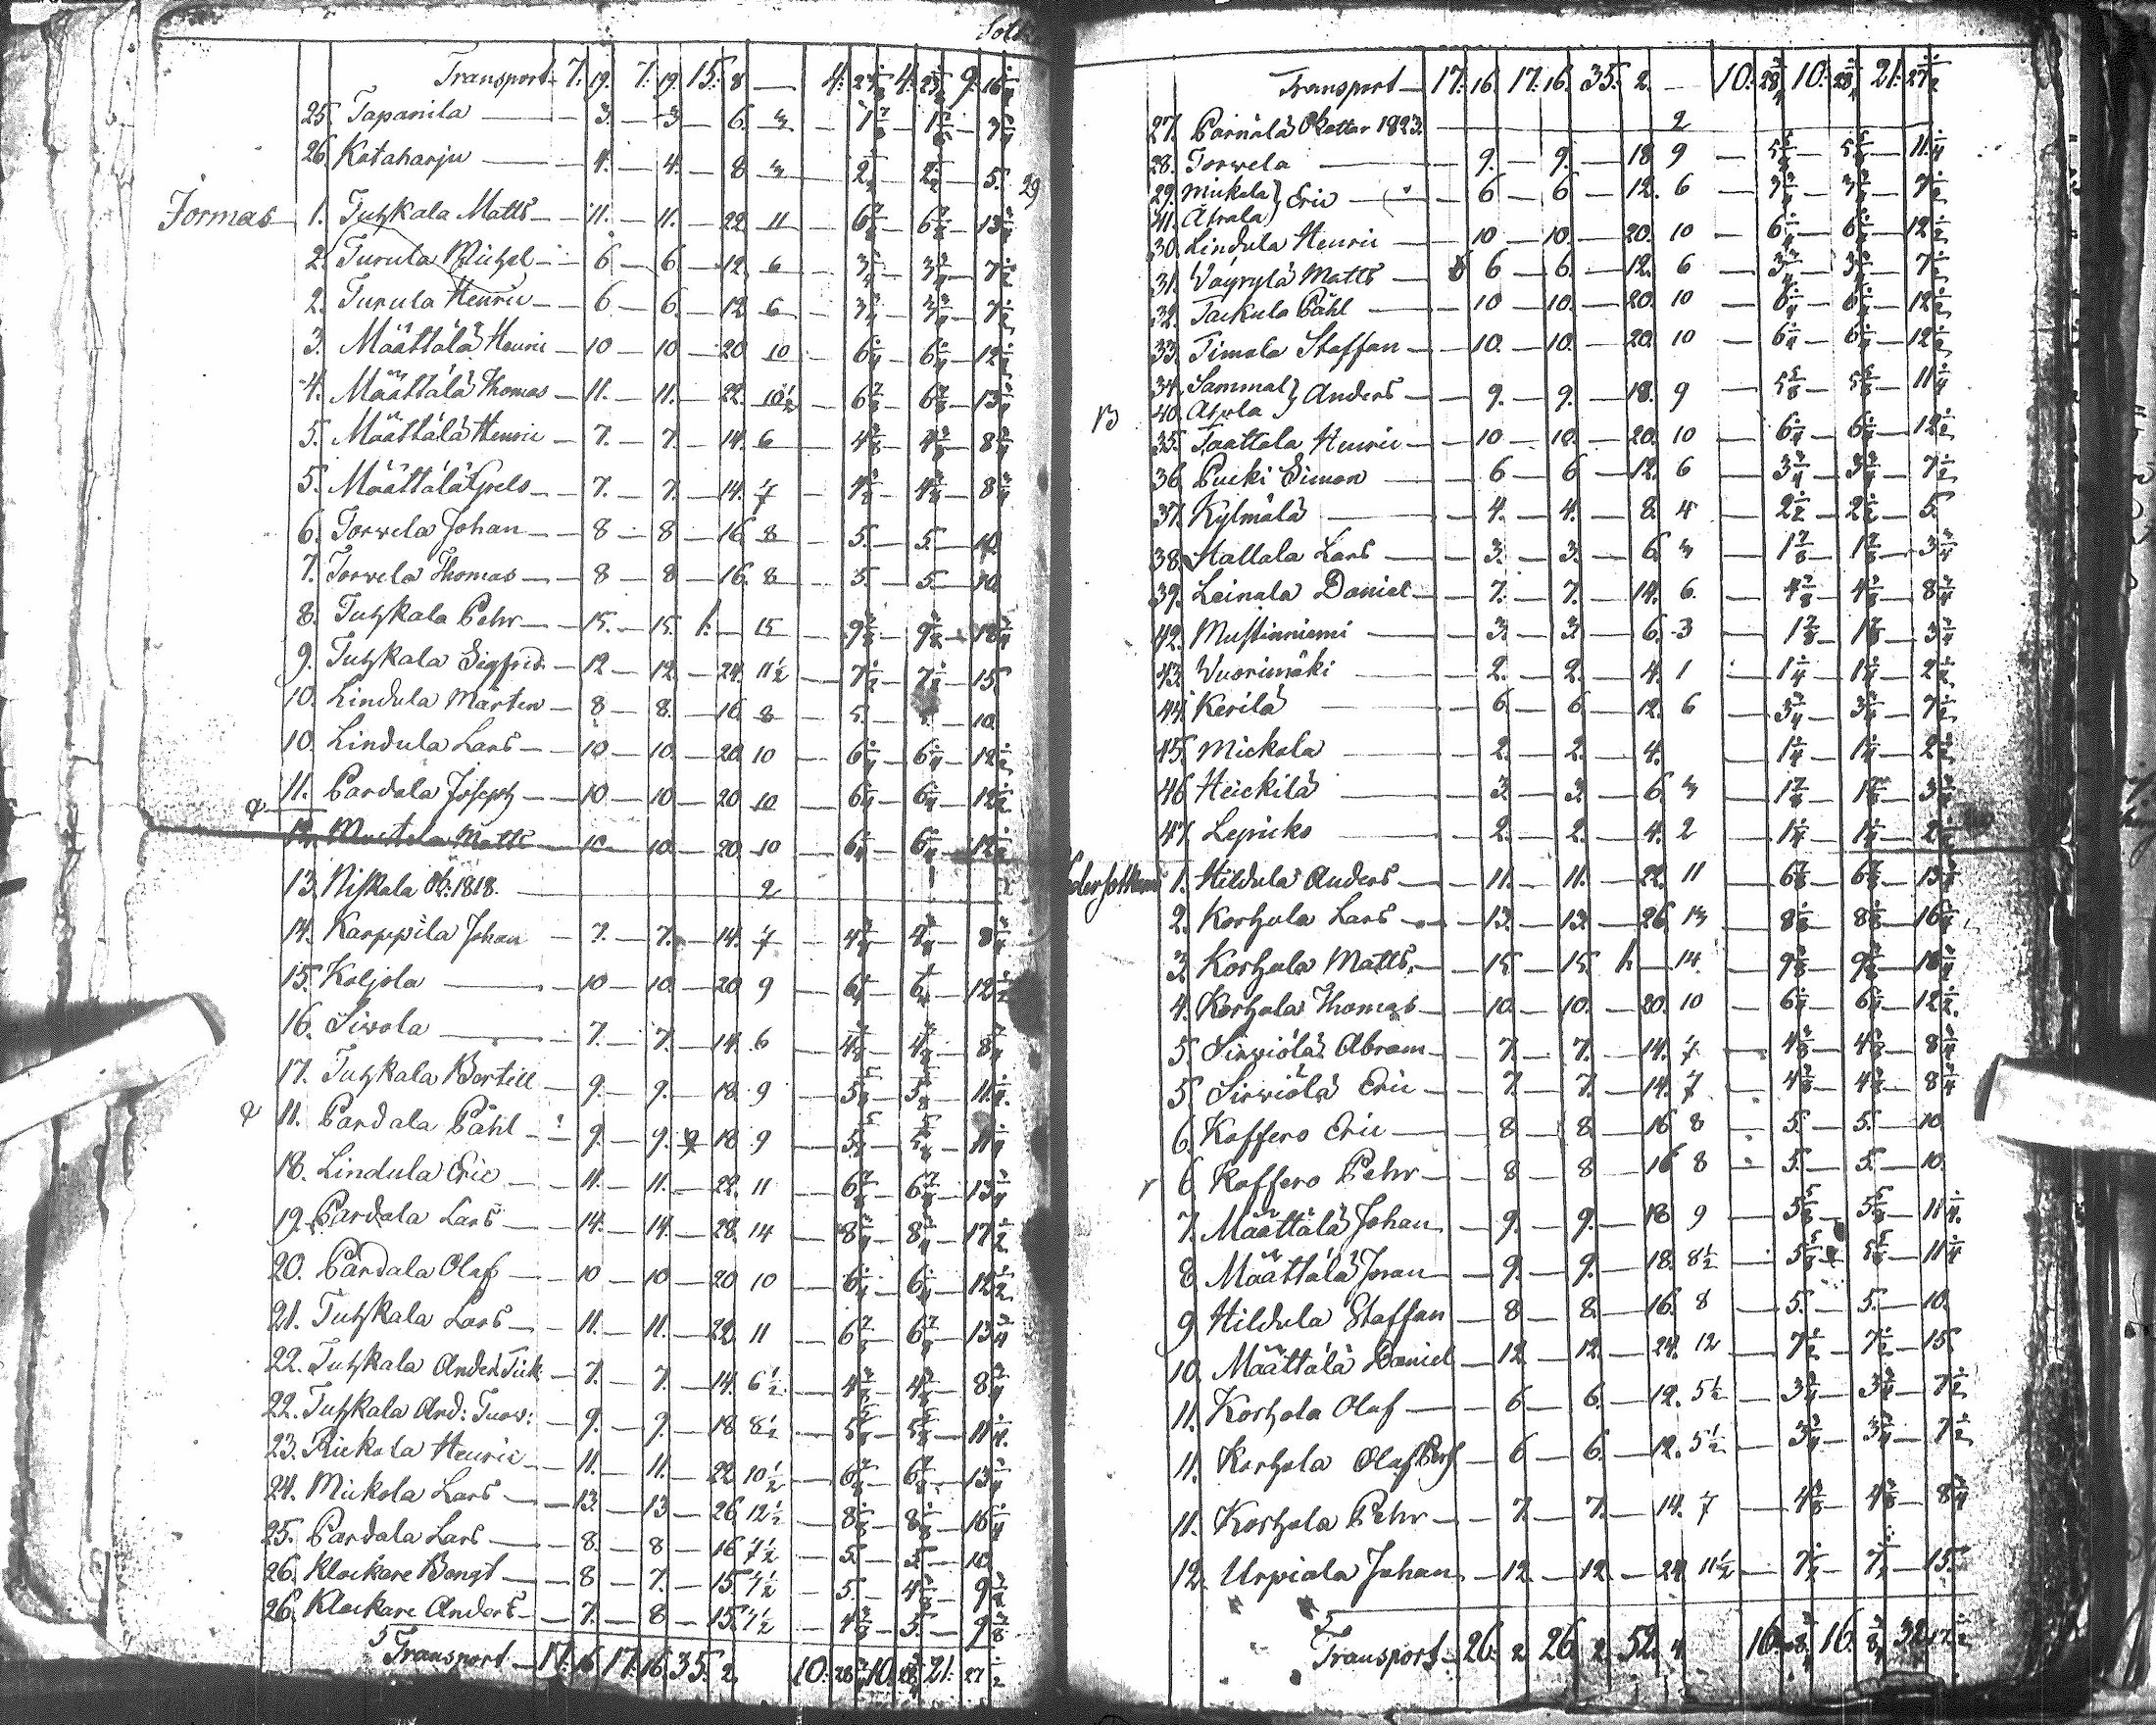 Transport 7. 19. 7. 19. 15. 8 — 4. 4. 9.
25. Tapanila — 3. — 3 — 6. 3 — 1 7/8 — 1 7/8 — 3 3/4
26. Kataharju — 4. — 4. — 8 3 — 2 1/2 — 2 1/2 — 5.
Jormas 1. Tuhkala Matts — 11. — 11. — 22 11 — 6 7/8 — 6 7/8 — 13 3/4
2. Turula Michel — 6 — 6 — 12. 6 — 3 3/4 — 3 3/4 — 7 1/2
2. Turula Henric — 6 — 6. — 12 6 — 3 3/4 — 3 3/4 — 7 1/2
3. Määttälä Henric — 10 — 10 — 20 10 — 6 1/4 — 6 1/4 — 12 1/2
4. Määttälä Thomas — 11. — 11. — 22. 10 1/2 — 6 7/8 — 6 7/8 — 13 3/4
5. Määttälä Henric — 7. — 7. — 14. 6 — 4 3/8 — 4 3/8 — 8 3/4
5. Määttälä — 7. — 7. — 14. 7 — 4 3/8 — 4 3/8 — 8 3/4
6. Torvela Johan — 8 — 8 — 16 8 — 5. — 5. — 10.
7. Torvela Thomas — 8 — 8 — 16. 8 — 5 — 5 — 10.
8. Tuhkala Pehr — 15. — 15. 1. — 15 — 9 3/8 — 9 3/8 — 18 3/4
9. Tuhkala Sigfrid — 12 — 12. — 24. 11 1/2 — 7 1/2 — 7 1/2 — 15.
10. Lindula Mårten — 8 — 8. — 16. 8 — 5. — — 10.
10. Lindula Lars — 10 — 10. — 20 10 — 6 1/4 — 6 1/4 — 12 1/2
11. Pardala Joseph — 10 — 10 — 20 10 — 6 1/4 — 6 1/4 — 12 1/2
12. Mustola Matts — 10 — 10 — 20. 10 — 6 1/4 — 6 1/4 — 12 1/2
13. Niskala Ob: 1818. — 2
14. Karppila Johan — 7. — 7. — 14. 7 — 4 3/8 — 4 3/8 8 3/4
15. Koljola — 10 — 10. — 20 9 — 6 1/4 — 6 1/4 — 12 1/2
16. Sivola — 7. — 7. — 14. 6 — 4 3/8 — 4 3/8 — 8 3/4
17. Tuhkala Bertill — 9. — 9. — 18. 9 — 5 5/8 — 5 5/8 — 11 1/4
11. Pardala Påhl — 9. — 9. 18 9 — 5 5/8 — 5 5/8 — 11 1/4
18. Lindula Eric — 11. — 11. — 22. 11 — 6 7/8 — 6 7/8 — 13 3/4
19. Pardala Lars — 14. — 14. — 28. 14 — 8 3/4 — 8 3/4 — 17 1/2
20. Pardala Olaf — 10 — 10 — 20 10 — 6 1/4 — 6 1/4 — 12 1/2
21. Tuhkala Lars — 11. — 11. — 22. 11 — 6 7/8 — 6 7/8 — 13 3/4
22. Tuhkala Anders — 7. — 7. — 14. 6 1/2 — 4 3/8 — 4 3/8 — 8 3/4
22. Tuhkala And: — 9. — 9. — 18 8 1/2 — 5 5/8 — 5 5/8 — 11 1/4
23. Rickola Henric — 11. — 11. — 22 10 1/2 — 6 7/8 — 6 7/8 — 13 3/4
24. Mickola Lars — 13. — 13 — 26 12 1/2 — 8 1/8 — 8 1/8 — 16 1/4
25. Pardala Lars — 8. — 8 — 16 7 1/2 — 5. — 5. — 10.
26. Klockare Bengt — 8 — 7. — 15 7 1/2 — 5. — 4 3/8 — 9 3/8
26. Klockare Anders — 7. — 8 — 15. 7 1/2 — 4 3/8 — 5. — 9 3/8
Transport — 17. 16 17. 16. 35. 2. 10. 28 3/4 10. 28 3/4 21. 27 1/2
Transport — 17. 16. 17. 16. 35. 2. — 10. 28 3/4 10. 28 3/4 21. 27 1/2
27. Pärnälä 1823. — 2
28. Torwela — 9. — 9. — 18 9 — 5 5/8 — 5 5/8 — 11 1/4
29. Mickola } Eric — 6 — 6 — 12. 6 — 3 3/4 — 3 3/4 — 7 1/2
41. Ahola
30. Lindula Henric — 10 — 10. — 20. 10 — 6 1/4 — 6 1/4 — 12 1/2
31. Väyrylä Matts — 6 — 6. — 12. 6 — 3 3/4 — 3 3/4 — 7 1/2
32. Tackula Påhl — 10 — 10. — 20. 10 — 6 1/4 — 6 1/4 — 12 1/2
33. Timola Staffan — 10. — 10. — 20. 10 — 6 1/4 — 6 1/4 — 12 1/2
34. Sammal } Anders — 9. — 9. — 18. 9 — 5 5/8 — 5 5/8 — 11 1/4
40. Ahola
35. Taattola Henric — 10 — 10. — 20. 10 — 6 1/4 — 6 1/4 — 12 1/2
36. Pucki Simon — 6 — 6 — 12. 6 — 3 3/4 — 3 3/4 — 7 1/2
37. Kylmälä — 4. — 4. — 8. 4 — 2 1/2 — 2 1/2 — 5.
38. Hallala Lars — 3. — 3. — 6. 3 — 1 7/8 — 1 7/8 — 3 3/4
39. Leinola Daniel — 7. — 7. — 14. 6. — 4 3/8 — 4 3/8 — 8 3/4
42. Mustinniemi — 3. — 3. — 6. 3 — 1 7/8 — 1 7/8 — 3 3/4
43. Vuorimäki — 2. — 2. — 4. 1 1 1/4 — 1 1/4 — 2 1/2
44. Kerilä — 6. — 6. — 12. 6 — 3 3/4 — 3 3/4 — 7 1/2
45. Mickola — 2. — 2. — 4. — 1 1/4 — 1 1/4 — 2 1/2
46. Heickilä — 3. — 3. — 6. 3 — 1 7/8 — 1 7/8 — 3 3/4
47. Lepicko — 2. — 2. — 4. 2 — 1 1/4 — 1 1/4 — 2 1/2
1. Hildula Anders — 11. — 11. — 22. 11 — 6 7/8 — 6 7/8 — 13 3/4
2. Korhola Lars — 13. — 13. — 26 13 — 8 1/8 — 8 1/8 — 16 1/4
3. Korhola Matts — 15. — 15. 1. — 14. — 9 3/8 — 9 3/8 — 18 3/4
4. Korhola Thomas — 10. — 10. — 20. 10 — 6 1/4 — 6 1/4 — 12 1/2
5. Sirviölä Abram — 7. — 7. — 14. 7 — 4 3/8 — 4 3/8 — 8 3/4
5. Sirviölä Eric — 7. — 7. — 14. 7 — 4 3/8 — 4 3/8 — 8 3/4
6. Kaffero Eric — 8 — 8 — 16 8 5. — 5. — 10
6. Kaffero Pehr — 8 — 8 — 16 8 5. — 5. — 10.
7. Määttälä Johan — 9. — 9. — 18 9 — 5 5/8 — 5 5/8 — 11 1/4
8. Määttälä Joran — 9. — 9. — 18. 8 1/2 — 5 5/8 — 5 5/8 — 11 1/4
9. Hildula Staffan — 8 — 8. — 16. 8 — 5. — 5. — 10.
10. Määttälä Daniel — 12 — 12. — 24. 12 — 7 1/2 — 7 1/2 — 15
11. Korhola Olaf — 6 — 6. — 12. 5 1/2 — 3 3/4 — 3 3/4 — 7 1/2
11. Korhola Olaf — 6 — 6. — 12. 5 1/2 — 3 3/4 — 3 3/4 — 7 1/2
11. Korhola Pehr — 7. — 7. — 14. 7 — 4 3/8 — 4 3/8 — 8 3/4
12. Urpiola Johan — 12. — 12 — 24. 11 1/2 — 7 1/2 — 7 1/2 — 15.
Transport — 26. 2 26. 2. 52. 4 16. 16. 32.